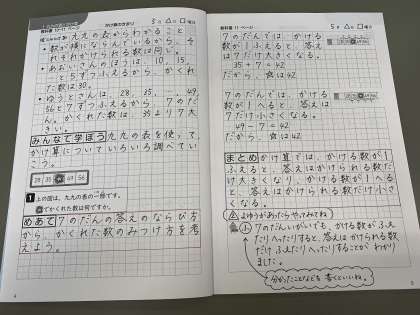 かけ算のきまり
5月△日□曜日
九九の表からわかること
数が横にならんでいるから、そ
れぞれかけられる数は同じ。
・あおいさんのほうは、10、15、
と5ずつふえるから、かくれ
た数は30。
・ゆうとさんは、28、35、…、49、
56と7ずつふえるから、7のだ
ん。かくれた数は、35より7大
きい。
みんなで学ぼう九九の表を使って、
かけ算についていろいろ調べてい
こう。
28 35 49 56
1 上の図は、九九の表の一部です。
でかくれた数は何ですか。
めあて7のだんの答えのならび方
から、かくれた数のみつけ方を考
えよう。
4
教科書 11 ページ
5月△日□曜日
7のだんでは、かける
数が1ふえると、答え
は7だけ大きくなる。
35+7=42
だから、★は42
7のだんでは、かける
数が1へると、答えは
7だけ小さくなる。
49-7=42
だから、★は42
まとめかけ算では、かける数が1
ふえると、答えはかけられる数だ
け大きくなり、かける数が1へる
と、答えはかけられる数だけ小さ
くなる。
よゆうがあったらやってみてね
7のだんいがいでも、かける数がふえ
たりへったりすると、答えはかけられる数
だけふえたりへったりすることがわかり
ました。
分かったことなども書くといいね。
5